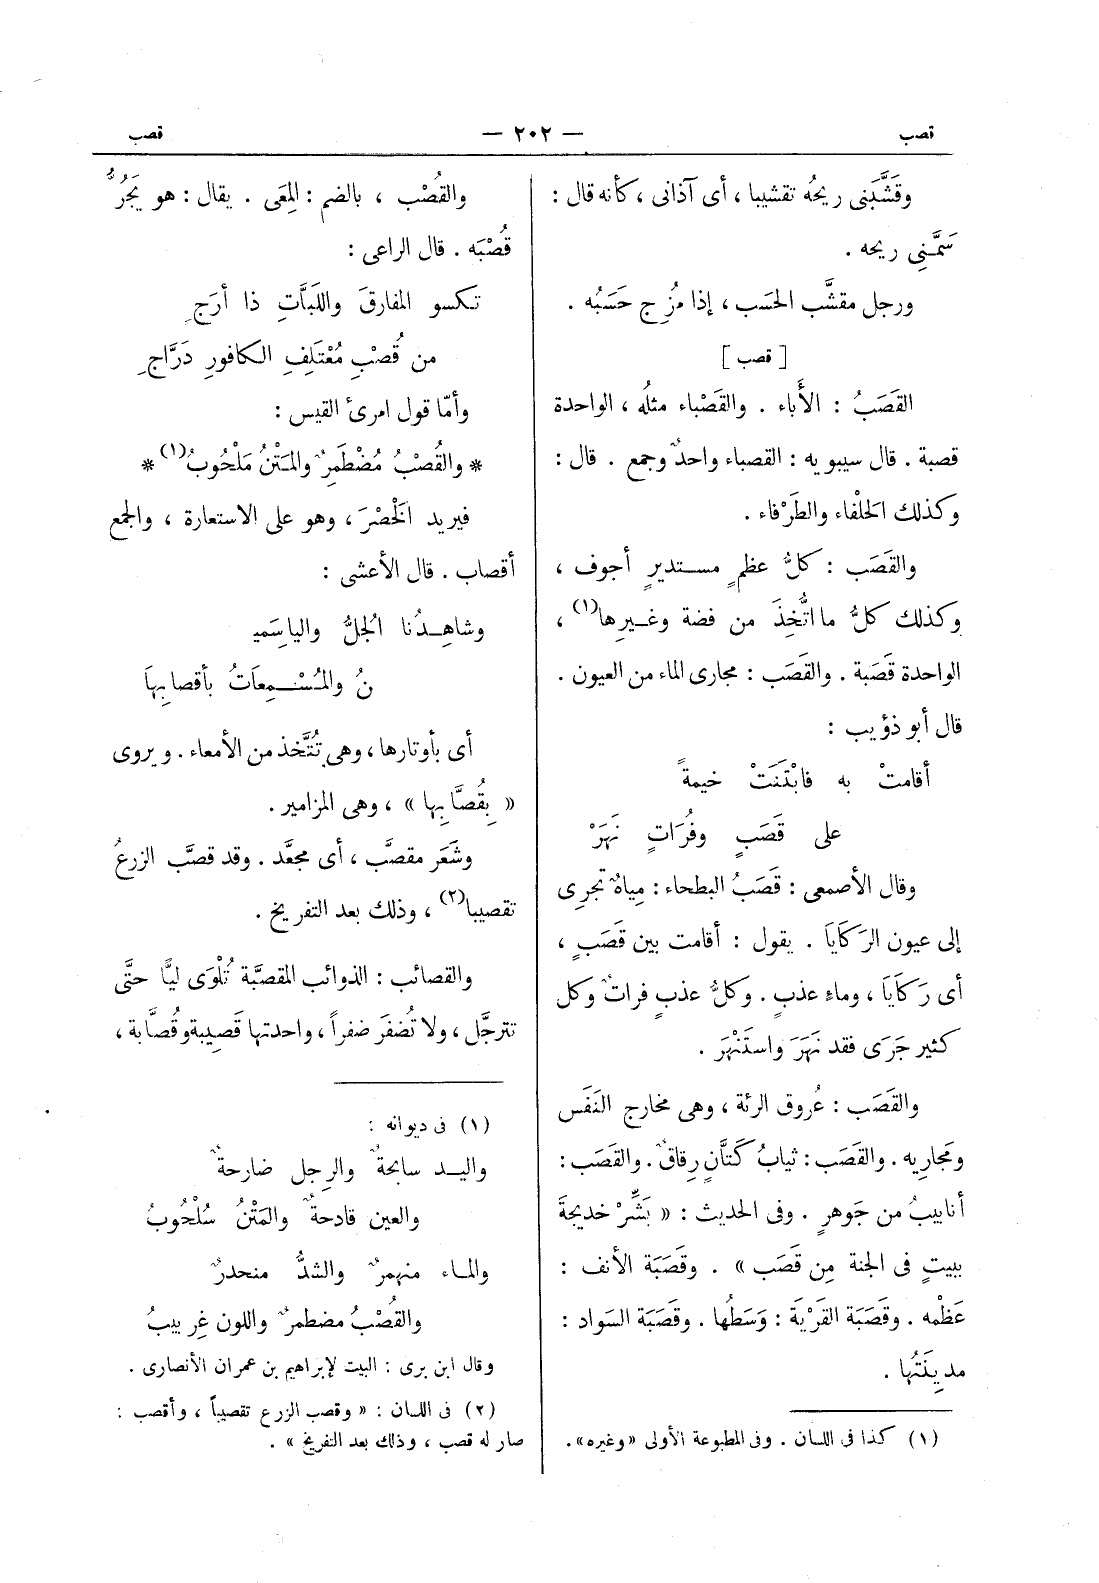 قصب — ٢٠٢ — قصب
وقَشَّبَنى ريحُه تقشيبا ، أى آذانى ، كأنه قال :
سَمَّنِى ريحه .
ورجل مقشَّب الحسَب ، إذا مُزِج حَسَبُه .
[ قصب ]
القَصَبُ : الأَباء . والقَصْباء مثلُه ، الواحدة
قصبة . قال سيبويه : القصباء واحدٌ وجمع . قال :
وكذلك الحَلْفاء والطَرْفاء .
والقَصَب : كلُّ عظمٍ مستديرٍ أجوف ،
وكذلك كلُّ ما اتُّخِذَ من فضة وغيرها(١) ،
الواحدة قَصَبة . والقَصَب : مجارى الماء من العيون .
قال أبو ذؤيب :
أقامتْ به فابْتَنَتْ خيمةً
على قَصَبٍ وفُرَاتٍ نَهَرْ
وقال الأصمعى : قَصَبُ البطحاء : مياهٌ تجرى
إلى عيون الرَكَايَا . يقول : أقامت بين قَصَبٍ ،
أى رَكَايَا ، وماءٍ عذبٍ . وكلُّ عذبٍ فراتٌ وكل
كثير جَرَى فقد نَهَرَ واستَنْهَرَ .
والقَصَب : عُروق الرئة ، وهى مخارج النَفَس
ومجاريه . والقَصَب : ثيابُ كَتَّانٍ رِقاقٌ . والقَصَب :
أنابيبُ من جوهرٍ . وفى الحديث : « بَشِّرْ خديجةَ
ببيتٍ فى الجنة مِن قَصَب » . وقَصَبَة الأنف :
عَظْمه . وقَصَبَة القَرْيَة : وَسَطُها . وقَصَبَة السَواد :
مدِينَتُها .
(١) كذا فى اللسان . وفى المطبوعة الأولى «وغيره» .
والقُصْب ، بالضم : المِعَى . يقال : هو يَجُرُّ
قُصْبَه . قال الراعى :
تكسو المفارقَ واللَبَّاتِ ذا أرَجٍ
من قُصْبِ مُعْتَلِفِ الكافورِ دَرَّاجِ
وأمّا قول امرئ القيس :
* والقُصْبُ مُضْطَمِرٌ والمَتْنُ مَلْحُوبُ(١) *
فيريد الخَصْرَ ، وهو على الاستعارة ، والجمع
أقصاب . قال الأعشى :
وشاهِدُنا الجُلُّ والياسَمِي
نُ والمُسْمِعَاتُ بأقصابِهَا
أى بأوتارها ، وهى تُتَّخذ من الأمعاء . ويروى
« بِقُصَّابِها » ، وهى المزامير .
وشَعَر مقصَّب ، أى مجعَّد . وقد قصَّب الزرعُ
تقصيبا(٢) ، وذلك بعد التفريخ .
والقصائب : الذوائب المقصَّبة تُلْوَى ليًّا حتَّى
تترجَّل ، ولا تُضفَر ضفراً ، واحدتها قَصِيبة وقُصَّابة ،
(١) فى ديوانه :
واليد سابحةٌ والرِجل ضارحةٌ
والعين قادحةٌ والمَتْنُ سُلْحُوبُ
والماء منهمرٌ والشدُّ منحدرٌ
والقُصْبُ مضطمرٌ واللون غِربيبُ
وقال ابن برى : البيت لإبراهيم بن عمران الأنصارى .
(٢) فى اللسان : « وقصب الزرع تقصيباً ، وأقصب :
صار له قصب ، وذلك بعد التفريخ » .